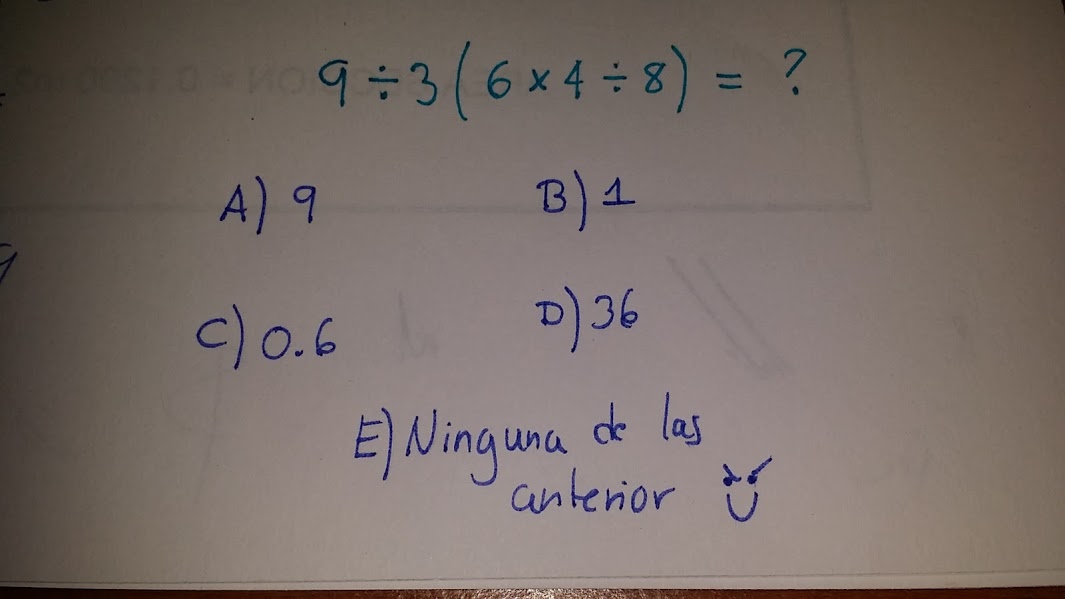 9 ÷ 3 ( 6 × 4 ÷ 8 ) = ?
A) 9 B) 1
C) 0.6 D) 36
E) Ninguna de las
anterior